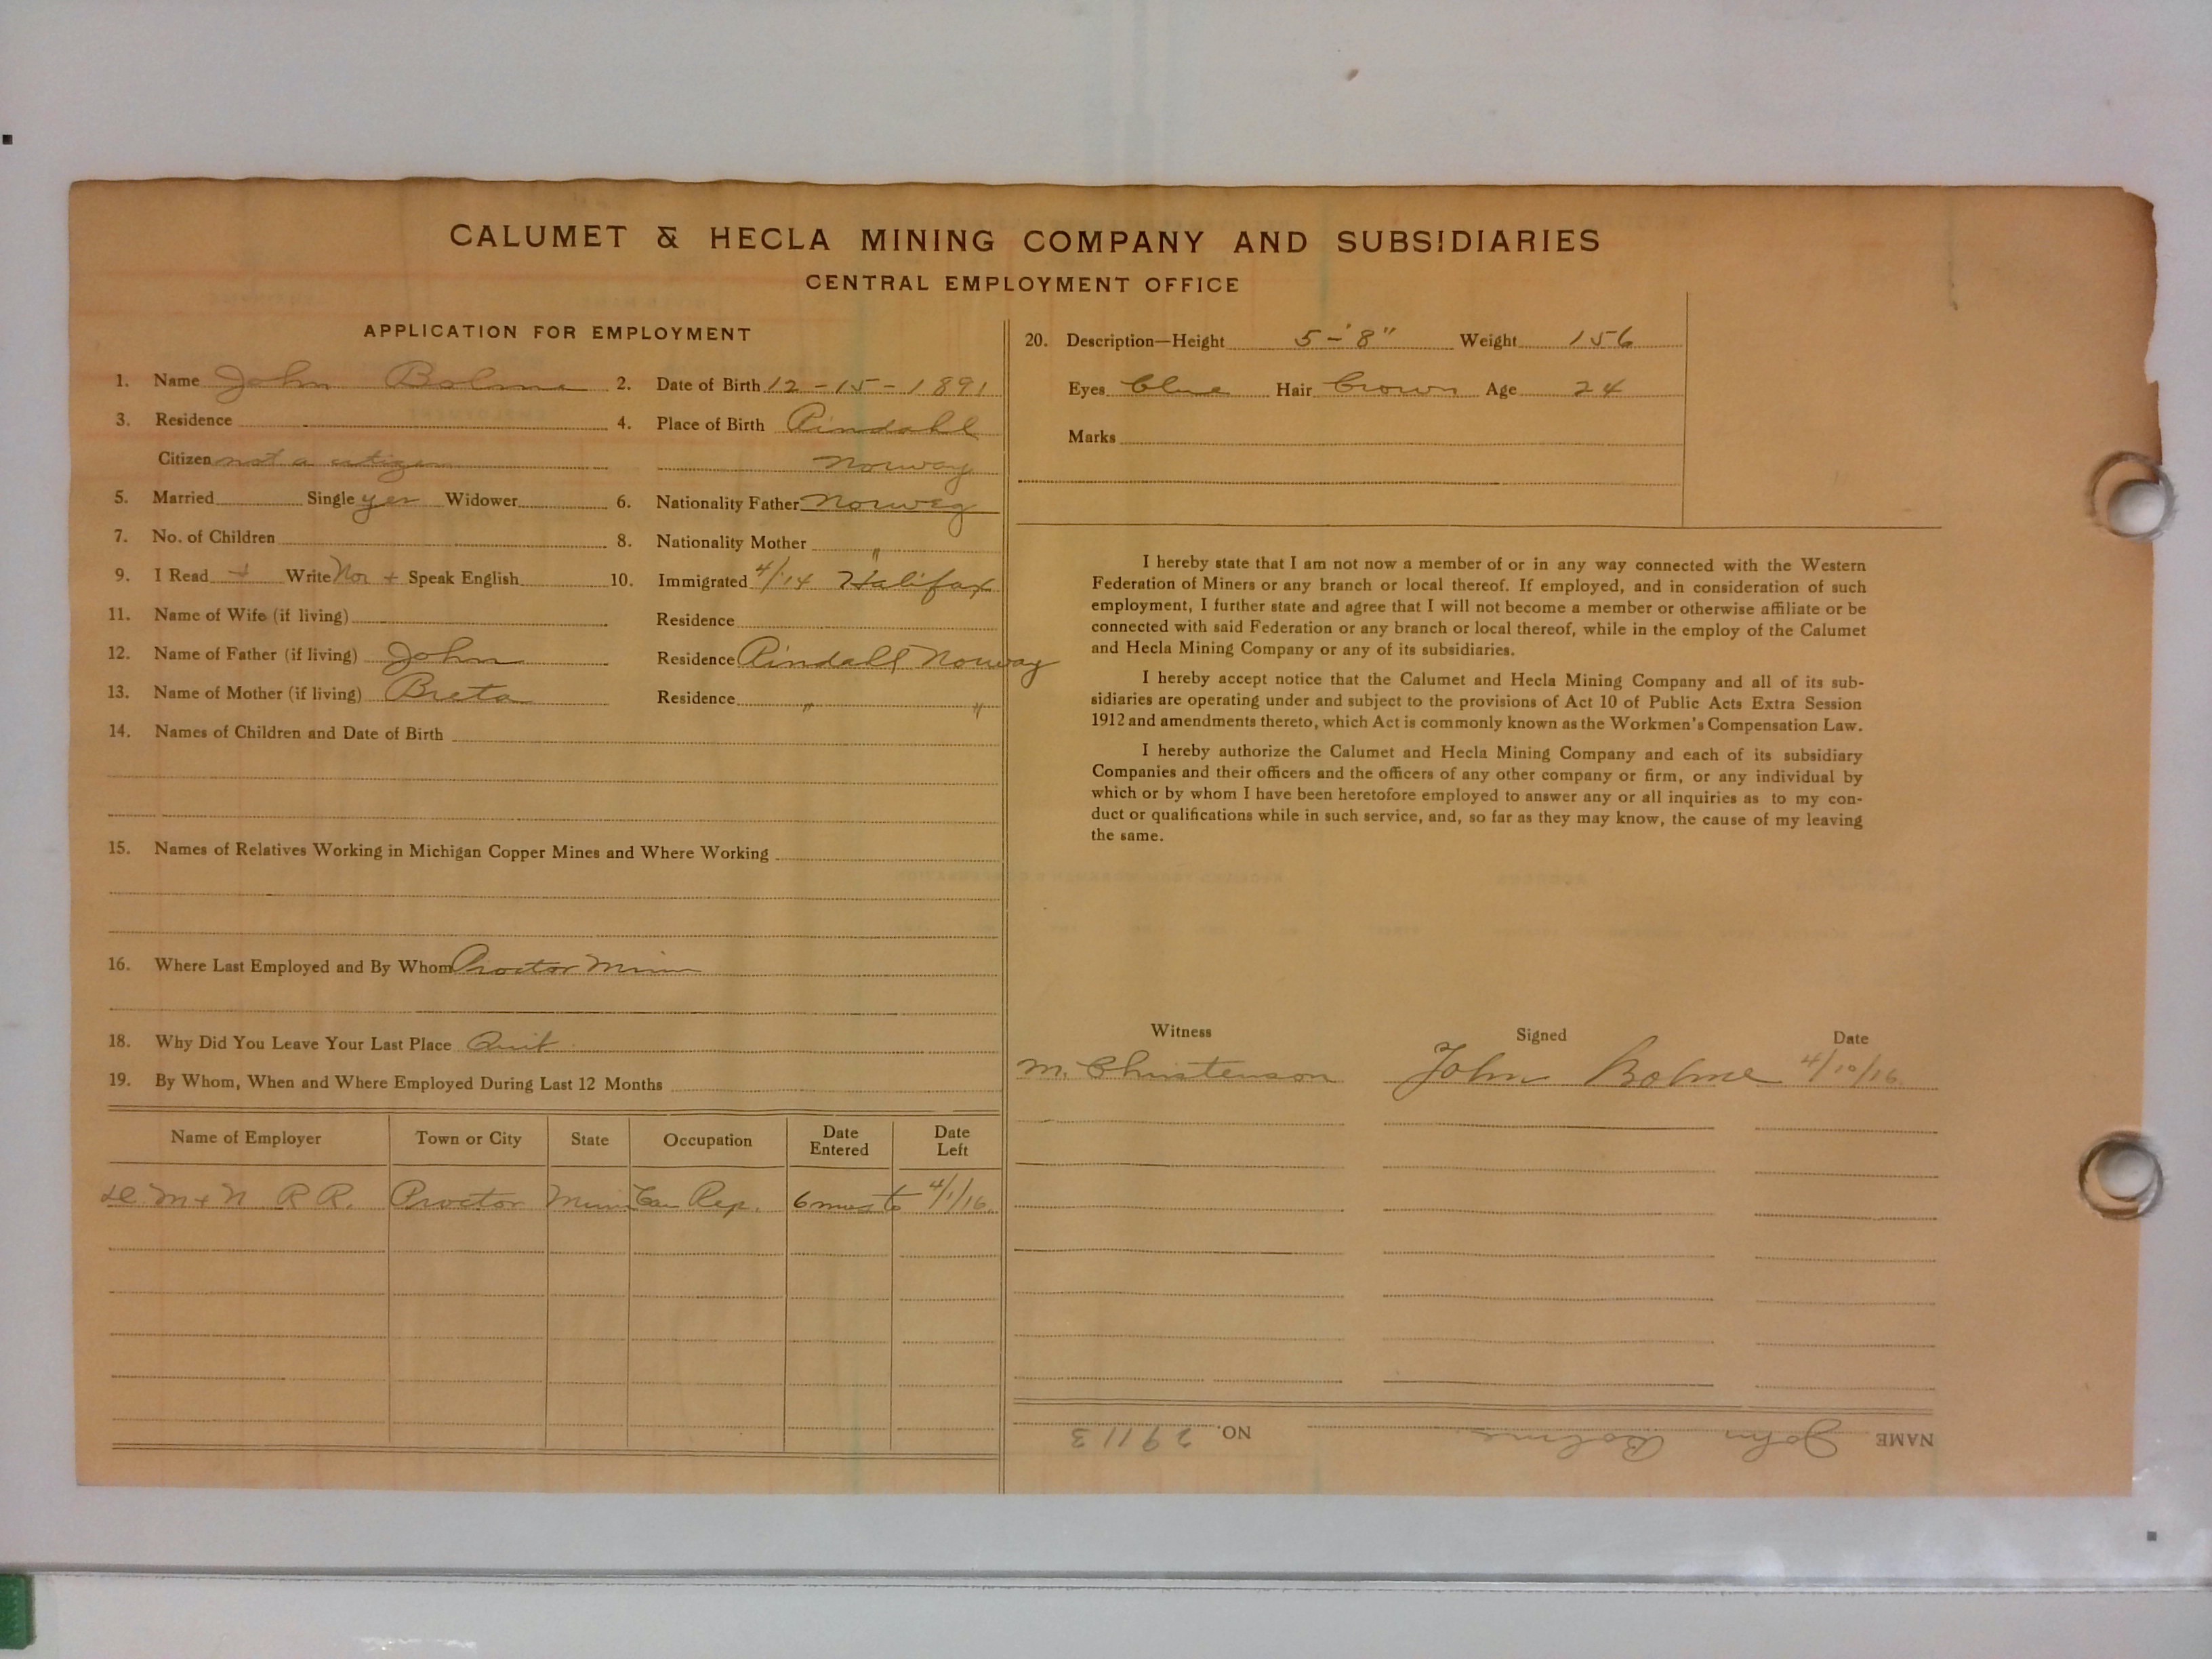 CALUMET & HECLA MINING COMPANY AND SUBSIDIARIES
CENTRAL EMPLOYMENT OFFICE
APPLICATION FOR EMPLOYMENT
1. Name John Bolme 2. Date of Birth 12-15-1891
3. Residence 4. Place of Birth Rindahl
Citizen not a citizen Norway
5. Married Single yes Widower 6. Nationality Father Norweg
7. No. of Children 8. Nationality Mother "
9. I Read + Write Nor + Speak English 10. Immigrated 4/14 Halifax
11. Name of Wife (if living) Residence
12. Name of Father (if living) John Residence Rindahl Norway
13. Name of Mother (if living) Breta Residence " "
14. Names of Children and Date of Birth
15. Names of Relatives Working in Michigan Copper Mines and Where Working
16. Where Last Employed and By Whom Proctor Minn
18. Why Did You Leave Your Last Place Quit
19. By Whom, When and Where Employed During Last 12 Months
Name of Employer Town or City State Occupation Date Entered Date Left
M + N R R. Proctor Minn Car Rep. 6 mos to 4/1/16.
20. Description—Height 5-'8" Weight 156
Eyes blue Hair brown Age 24
Marks
I hereby state that I am not now a member of or in any way connected with the Western
Federation of Miners or any branch or local thereof. If employed, and in consideration of such
employment, I further state and agree that I will not become a member or otherwise affiliate or be
connected with said Federation or any branch or local thereof, while in the employ of the Calumet
and Hecla Mining Company or any of its subsidiaries.
I hereby accept notice that the Calumet and Hecla Mining Company and all of its sub-
sidiaries are operating under and subject to the provisions of Act 10 of Public Acts Extra Session
1912 and amendments thereto, which Act is commonly known as the Workmen's Compensation Law.
I hereby authorize the Calumet and Hecla Mining Company and each of its subsidiary
Companies and their officers and the officers of any other company or firm, or any individual by
which or by whom I have been heretofore employed to answer any or all inquiries as to my con-
duct or qualifications while in such service, and, so far as they may know, the cause of my leaving
the same.
Witness Signed Date
M. Christenson John Bolme 4/10/16
NAME John Bolme NO. 29113